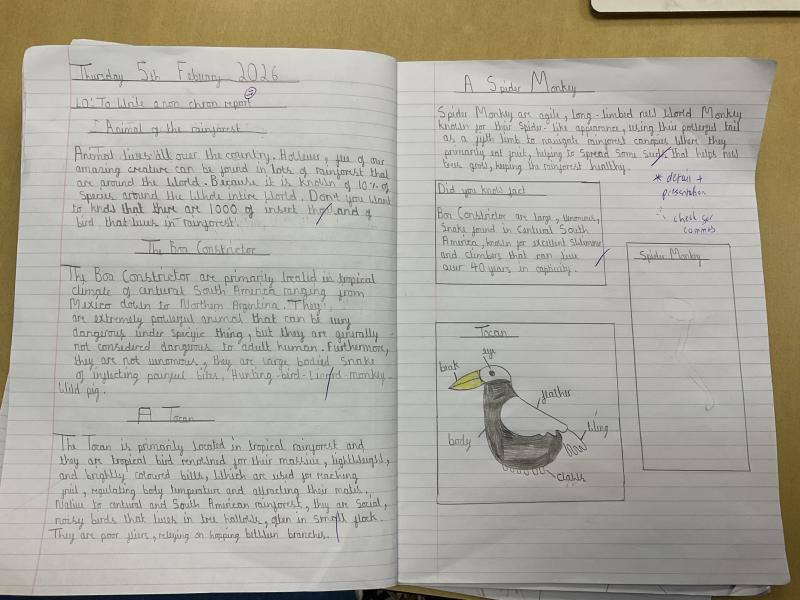 Thursday 5th Febuary 2026
LO: To write a non chron report
Animal of the rainforest
Animal lives all over the country. However, few of our
amazing creature can be found in lots of rainforest that
are around the World. Because it is known of 10% of
Species around the Whole intire World. Don't you want
to know that there are 1000 of insect thousand of
bird, that lives in rainforest.
The Boa Constrictor
The Boa Constrictor are primarily located in tropical
climate of cantural South America ranging from
Mexico down to Northern Argentina. They
are extremely powerful animal that can be very
dangerous under Specific thing, but they are generally
not considered dangerous to adult human. Furthermore,
they are not venomous, they are large bodied Snake
of inflecting painful bites, Hunting-bird-Lizard-monkey
Wild pig.
A Tocan
The Tocan is primarily located in tropical rainforest and
they are tropical bird renowned for their massive, lightweight,
and brightly coloured bills, Which are used for reaching
fruit, regulating body temperature and attracting their mates.
Native to cantural and South American rainforest, they are Social,
noisy birds that lives in tree hallows, often in small flock.
They are poor fliers, relying on hopping between branches.
A Spider Monkey
Spider Monkey are agile, long-limbed new World Monkey
known for their Spider-like appearance, using their powerful tail
as a fifth limb to navigate rainforest canopies Where they
primarily eat fruit, helping to Spread Some that helps new
trees grow, keeping the rainforest healthy.
* detail +
presentation
∴ check for
commas
Did you know fact
Boa Constrictor are large, venomous,
Snake found in Cantural South
America, known for excellent
and climbers that can live
over 40 years in captivity.
Spider Monkey
Tocan
eye
beak
feather
body
Wing
claws